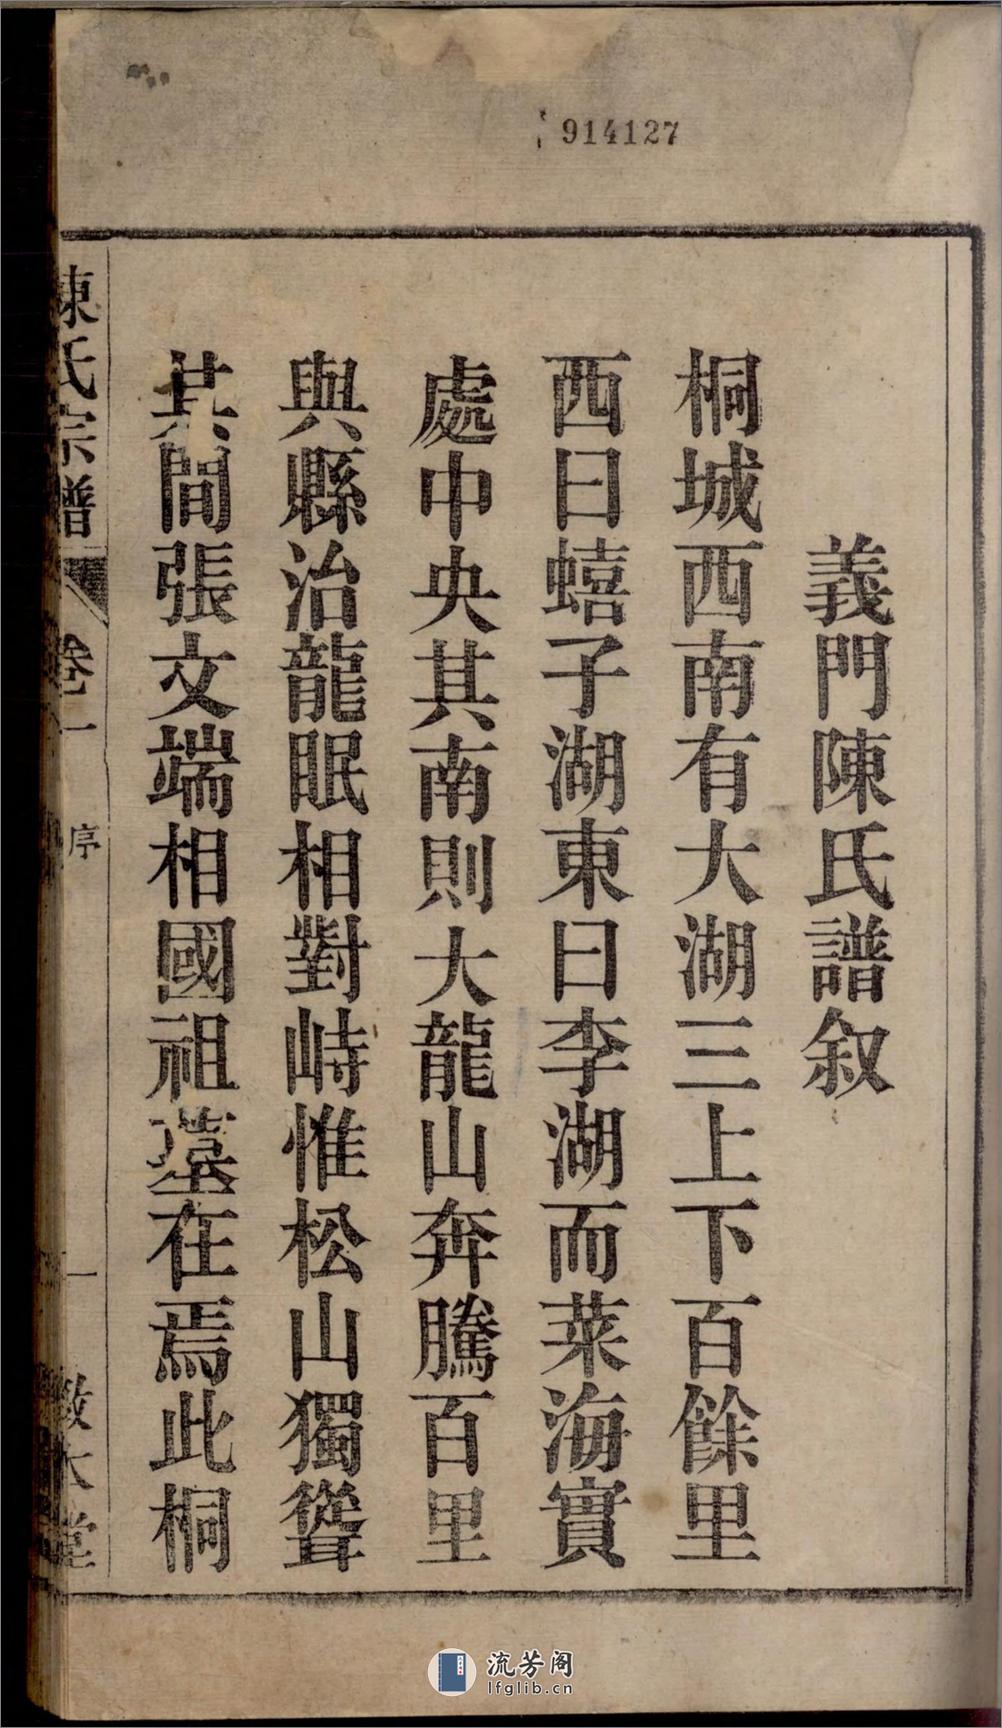 914127
義門陳氏譜叙
桐城西南有大湖三上下百餘里
西曰蟢子湖東曰李湖而萊海實
處中央其南則大龍山奔騰百里
與縣治龍眠相對峙惟松山獨聳
其間張文端相國祖塋在焉此桐
陳氏宗譜
卷一
序
一
敦本堂
流芳阁
lfglib.cn